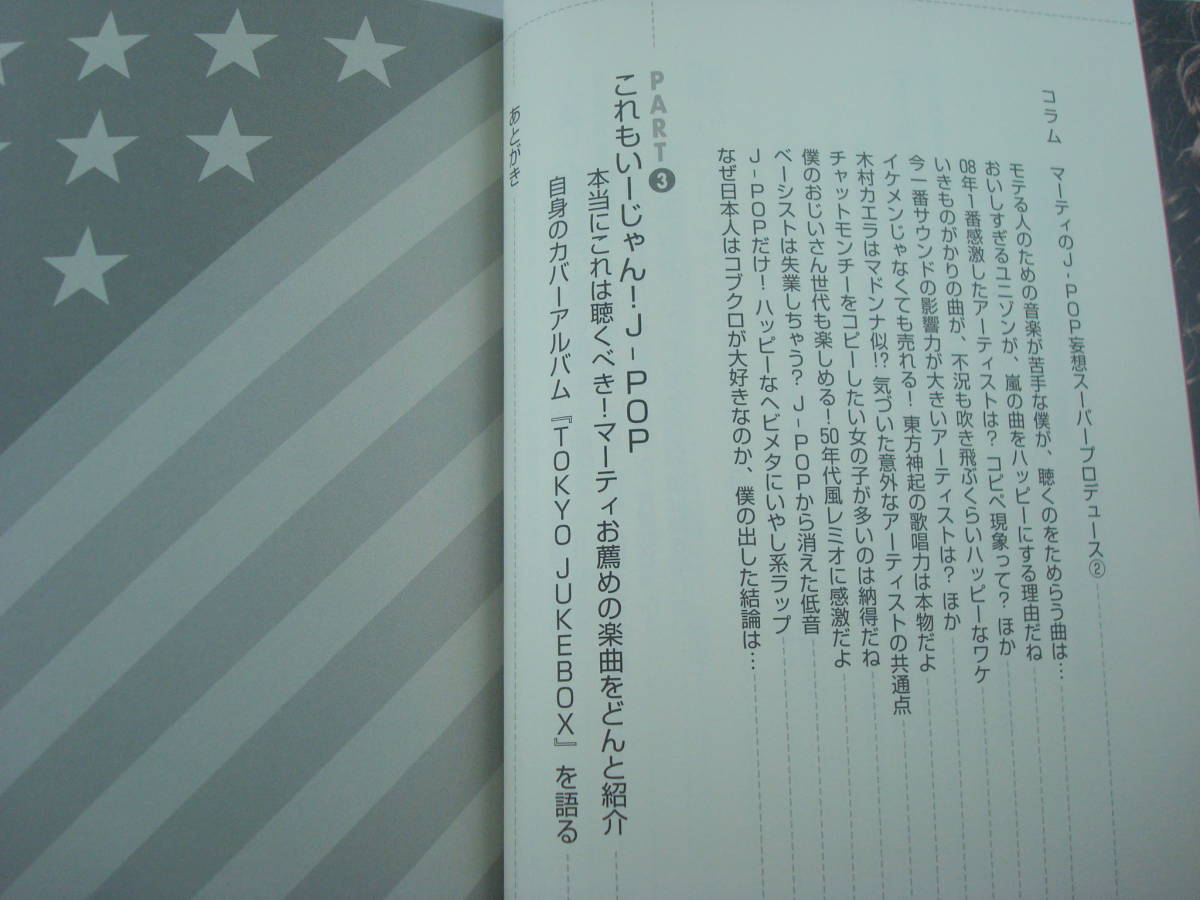 コラム マーティのJ-POP妄想スーパープロデュース②
モテる人のための音楽が苦手な僕が、聴くのをためらう曲は…
おいしすぎるユニゾンが、嵐の曲をハッピーにする理由だね
08年1番感激したアーティストは? コピペ現象って? ほか
いきものがかりの曲が、不況も吹き飛ぶくらいハッピーなワケ
今一番サウンドの影響力が大きいアーティストは? ほか
イケメンじゃなくても売れる! 東方神起の歌唱力は本物だよ
木村カエラはマドンナ似!? 気づいた意外なアーティストの共通点
チャットモンチーをコピーしたい女の子が多いのは納得だね
僕のおじいさん世代も楽しめる! 50年代風レミオに感激だよ
ベーシストは失業しちゃう? J-POPから消えた低音
J-POPだけ! ハッピーなヘビメタにいやし系ラップ
なぜ日本人はコブクロが大好きなのか、僕の出した結論は…
PART 3
これもいーじゃん! J-POP
本当にこれは聴くべき! マーティお薦めの楽曲をどんと紹介
自身のカバーアルバム『TOKYO JUKEBOX』を語る
あとがき